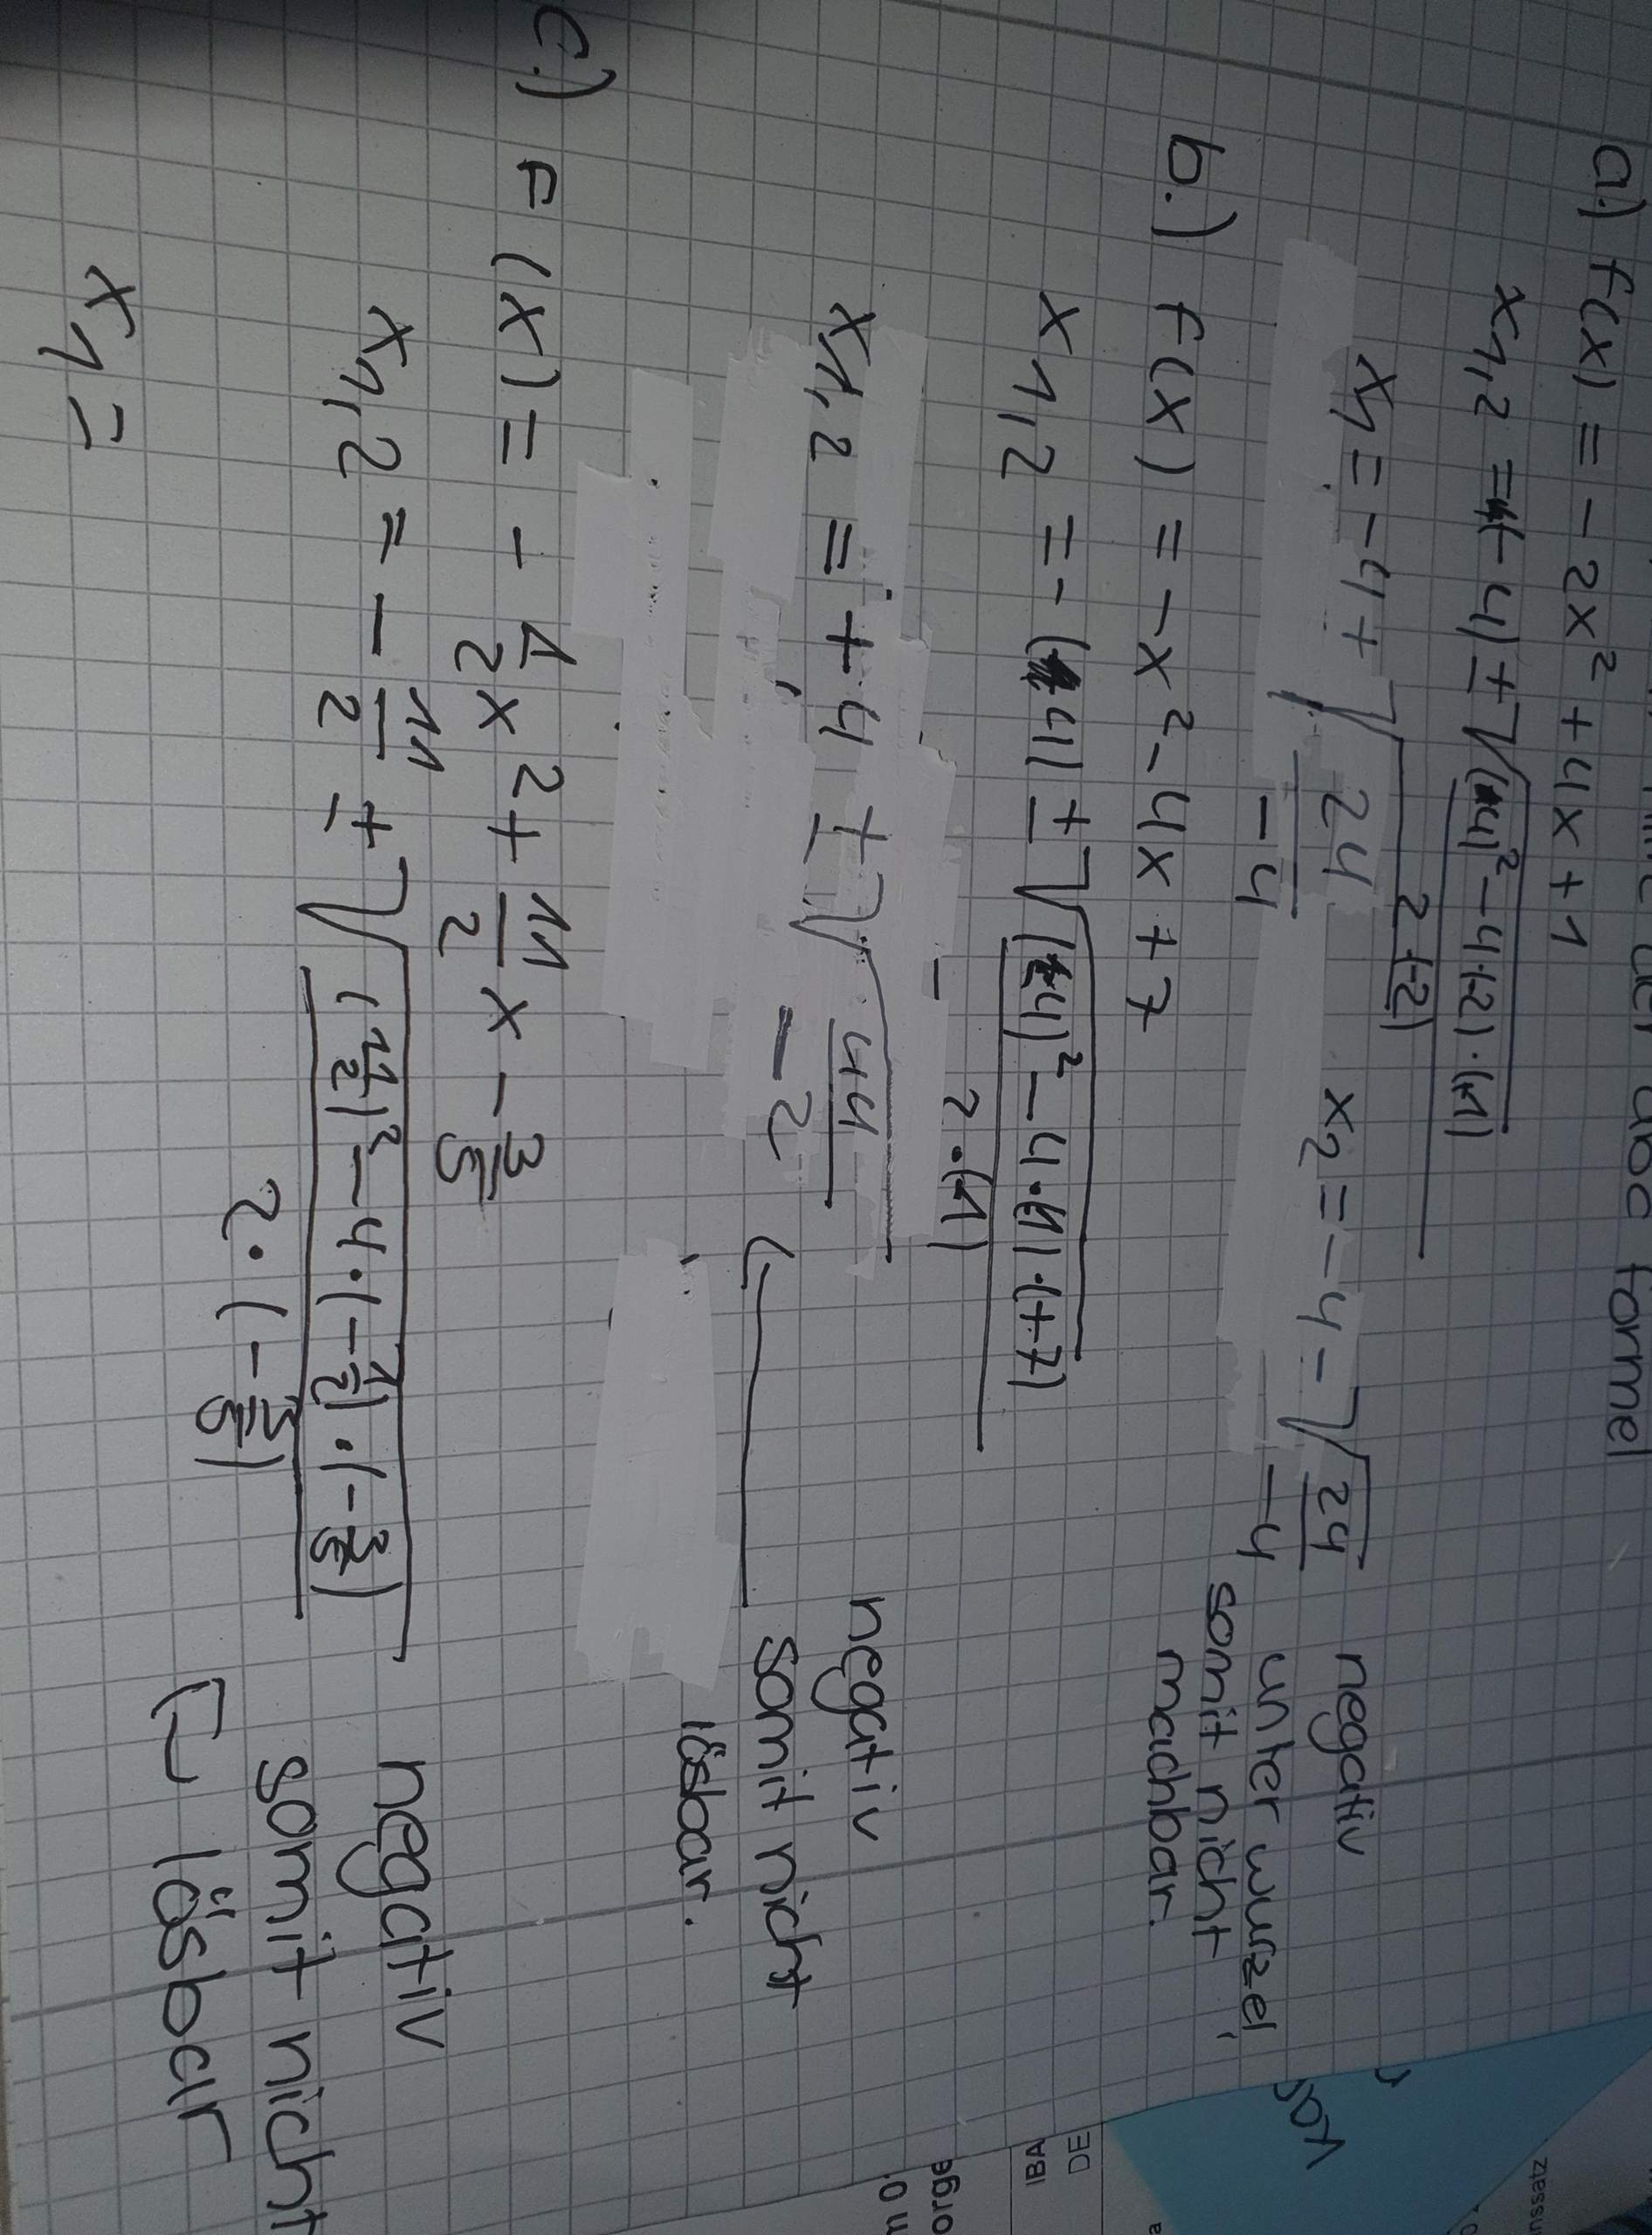 abc formel
a.) f(x) = -2x² + 4x + 1
x1,2 = -(-4) ± √(4)² - 4·(-2)·(+1)
2·(-2)
x1 = -4 + √24 x2 = -4 - √24
-4 -4
negativ
unter wurzel,
somit nicht
machbar.
b.) f(x) = -x² - 4x + 7
x1,2 = -(-4) ± √(-4)² - 4·(-1)·(+7)
2·(-1)
x1,2 = +4 ± √44
-2
negativ
somit nicht
lösbar.
c.) F(x) = - 1/2 x² + 11/2 x - 3/5
x1,2 = - 11/2 ± √(11/2)² - 4·(-1/2)·(-3/5)
2·(-3/5)
negativ
somit nicht
lösbar
x1 =
IBA
DE
orge
nssatz